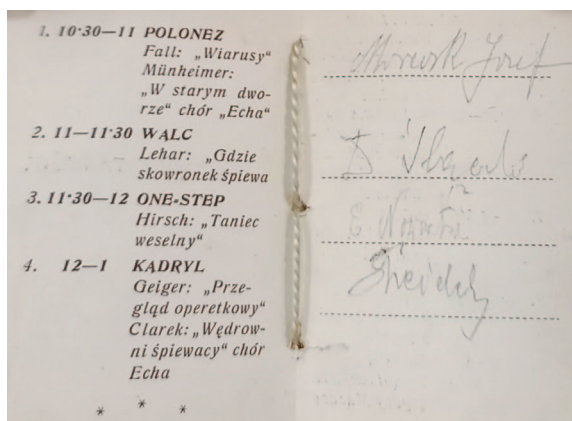 1. 10·30—11 POLONEZ
Fall: „Wiarusy“
Münheimer:
„W starym dwo-
rze“ chór „Echa“
2. 11—11·30 WALC
Lehar: „Gdzie
skowronek śpiewa
3. 11·30—12 ONE-STEP
Hirsch: „Taniec
weselny“
4. 12—1 KADRYL
Geiger: „Prze-
gląd operetkowy“
Clarek: „Wędrow-
ni śpiewacy“ chór
Echa
* * *
Józef